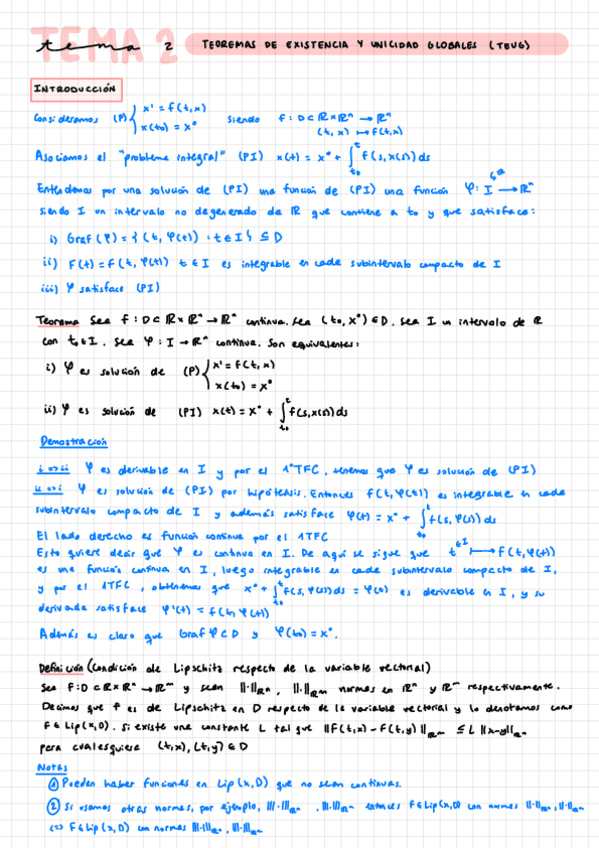 TEMA 2
tema 2 TEOREMAS DE EXISTENCIA Y UNICIDAD GLOBALES (TEUG)
INTRODUCCIÓN
Consideramos (P) { x' = f(t,x) siendo f: D ⊂ ℝ×ℝⁿ → ℝⁿ
x(t₀) = x⁰ (t,x) ↦ f(t,x)
Asociamos el "problema integral" (PI) x(t) = x⁰ + ∫_{t₀}^{t} f(s,x(s)) ds
Entendemos por una solución de (PI) una función de (PI) una función φ: I → ℝⁿ
siendo I un intervalo no degenerado de ℝ que contiene a t₀ y que satisface:
i) Graf(φ) = { (t, φ(t)) : t ∈ I } ⊆ D
ii) F(t) = f(t, φ(t)) t ∈ I es integrable en cada subintervalo compacto de I
iii) φ satisface (PI)
Teorema Sea f: D ⊂ ℝ×ℝⁿ → ℝⁿ continua. Sea (t₀, x⁰) ∈ D. Sea I un intervalo de ℝ
con t₀ ∈ I. Sea φ: I → ℝⁿ continua. Son equivalentes:
i) φ es solución de (P) { x' = f(t,x)
x(t₀) = x⁰
ii) φ es solución de (PI) x(t) = x⁰ + ∫_{t₀}^{t} f(s,x(s)) ds
Demostración
i => ii φ es derivable en I y por el 1ºTFC, tenemos que φ es solución de (PI)
ii => i φ es solución de (PI) por hipótesis. Entonces f(t, φ(t)) es integrable en cada
subintervalo compacto de I y además satisface φ(t) = x⁰ + ∫_{t₀}^{t} f(s, φ(s)) ds
El lado derecho es función continua por el 1TFC
Esto quiere decir que φ es continua en I. De aquí se sigue que t ∈ I ↦ f(t, φ(t))
es una función continua en I, luego integrable en cada subintervalo compacto de I,
y por el 1TFC, obtenemos que x⁰ + ∫_{t₀}^{t} f(s, φ(s)) ds = φ(t) es derivable en I, y su
derivada satisface φ'(t) = f(t, φ(t))
Además es claro que Graf φ ⊂ D y φ(t₀) = x⁰.
Definición (Condición de Lipschitz respecto de la variable vectorial)
Sea f: D ⊂ ℝ×ℝⁿ → ℝᵐ y sean ‖·‖ℝⁿ, ‖·‖ℝᵐ normas en ℝⁿ y ℝᵐ respectivamente.
Decimos que f es de Lipschitz en D respecto de la variable vectorial y lo denotamos como
f ∈ Lip(x,D). Si existe una constante L tal que ‖f(t,x) - f(t,y)‖ℝᵐ ≤ L ‖x-y‖ℝⁿ
para cualesquiera (t,x), (t,y) ∈ D
Notas
① Pueden haber funciones en Lip(x,D) que no sean continuas.
② Si usamos otras normas, por ejemplo, |||·|||ℝⁿ, |||·|||ℝᵐ entonces f ∈ Lip(x,D) con normas ‖·‖ℝⁿ, ‖·‖ℝᵐ
<=> f ∈ Lip(x,D) con normas |||·|||ℝⁿ, |||·|||ℝᵐ